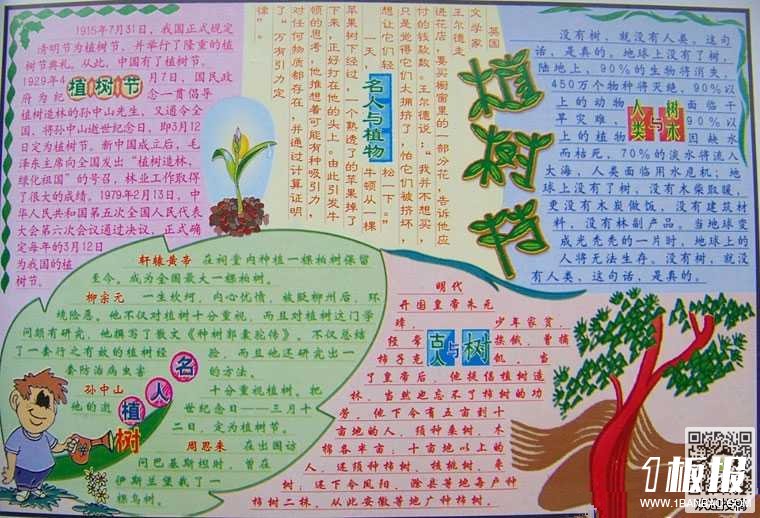 1915年7月31日,我国正式规定
清明节为植树节,并举行了隆重的植
树节典礼。从此,中国有了植树节。
1929年4
月7日,国民政
府为纪
念一贯倡导
植树节
植树造林的孙中山先生,又通令全
国,将孙中山逝世纪念日,即3月12
日定为植树节。新中国成立后,毛
泽东主席向全国发出“植树造林,
绿化祖国”的号召,林业工作取得
了很大的成绩。1979年2月13日,中
华人民共和国第五次全国人民代表
大会第六次会议通过决议,正式确
定每年的3月12日
为我国的植
树节。
英国
文学家
王尔德走
进花店,要买橱窗里的一部分花,告诉他应
付的钱数。王尔德说:“我并不想买,
只是觉得它们太拥挤了,怕它们被挤坏,
想让它们轻
松一下。”
名人与植物
一天,
牛顿从一棵
苹果树下经过,一个熟透了的苹果掉了
下来,正好打在他的头上。由此引发牛
顿的思考,他推想着可能有种吸引力,
对任何物质都存在,并通过计算证明
了“万有引力定
律”。
没有树,就没有人类。这句
话,是真的。地球上没有了树,
陆地上,90%的生物将消失,
450万个物种将灭绝,90%以
上的动物
面临干
旱灾难,
90%以
上的植物
因缺水
人类与树木
而枯死,70%的淡水将流入
大海,人类面临用水危机;地
球上没有了树,没有木柴取暖,
更没有木炭做饭,没有建筑材
料,没有林副产品。当地球变
成光秃秃的一片时,地球上的
人将无法生存。没有树,就没
有人类,这句话,是真的。
轩辕黄帝 在祠堂内种植一棵柏树保留
至今。成为全国最大一棵柏树。
柳宗元 一生坎坷,内心忧愤,被贬柳州后,环
境险恶。他不仅对植树十分重视,而且对植树这门学
问颇有研究,他撰写了散文《种树郭橐驼传》。不仅总结
了一套行之有效的植树经
验,而且他还研究出一
套防治病虫害
的方法。
孙中山
十分重视植树。把
他的逝
世纪念日——三月十
二日,定为植树节。
植树名人
周恩来 在出国访
问巴基斯坦时,曾在
伊斯兰堡栽了一
棵乌树。
明代
开国皇帝朱元
璋,
少年家贫,
经常
挨饿,曾摘
柿子充
饥,当
古人与树
了皇帝后,他提倡植树造
林,当然也忘不了柿树的功
劳,他下令有五亩到十
亩地的人,须种桑树、木
棉各半亩;十亩地以上的
人,还须种柿树、核桃树、枣
树;还下令凤阳、滁县等地每户种
柿树二株,从此安徽等地广种柿树。
1板报
WWW.1BANBAO.COM